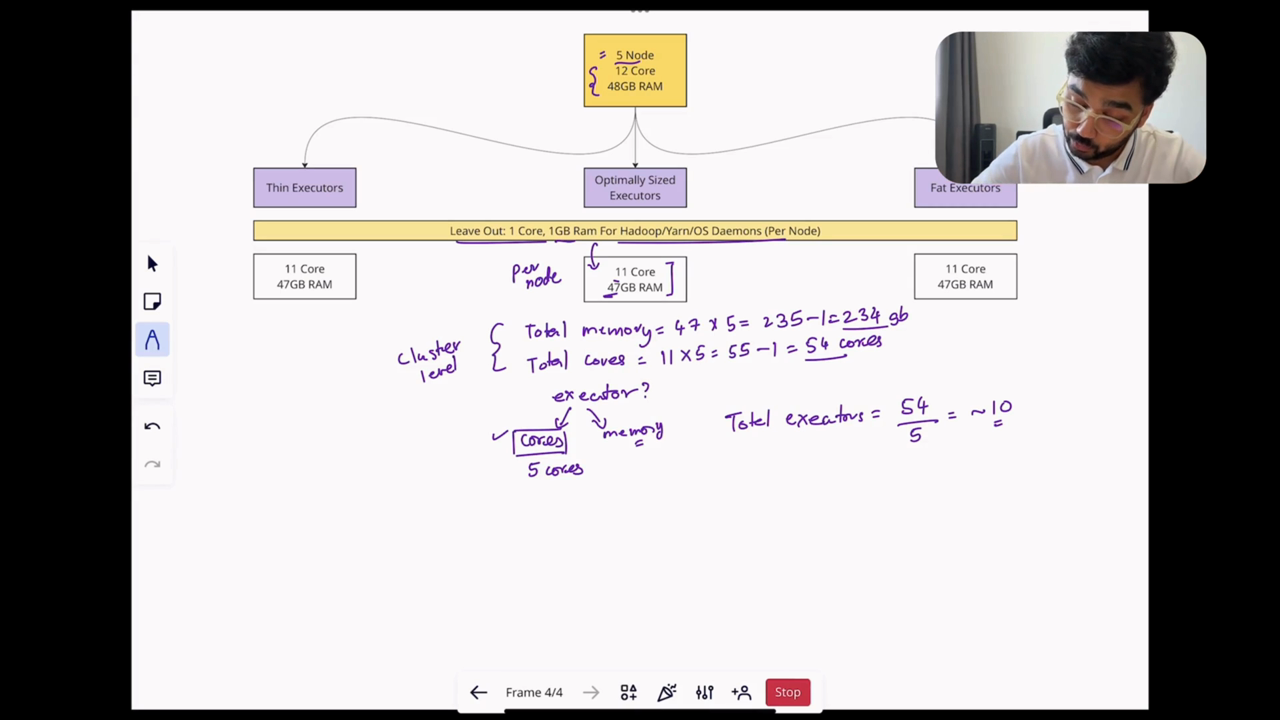 = 5 Node
{ 12 Core
48GB RAM
Thin Executors
Optimally Sized
Executors
Fat Executors
Leave Out: 1 Core, 1GB Ram For Hadoop/Yarn/OS Daemons (Per Node)
11 Core
47GB RAM
Per
node
11 Core
47GB RAM
11 Core
47GB RAM
Cluster
level
Total memory = 47 x 5 = 235-1 = 234 gb
Total cores = 11 x 5 = 55-1 = 54 cores
executor?
cores
memory
5 cores
Total executors = 54/5 = ~10
Frame 4/4
Stop